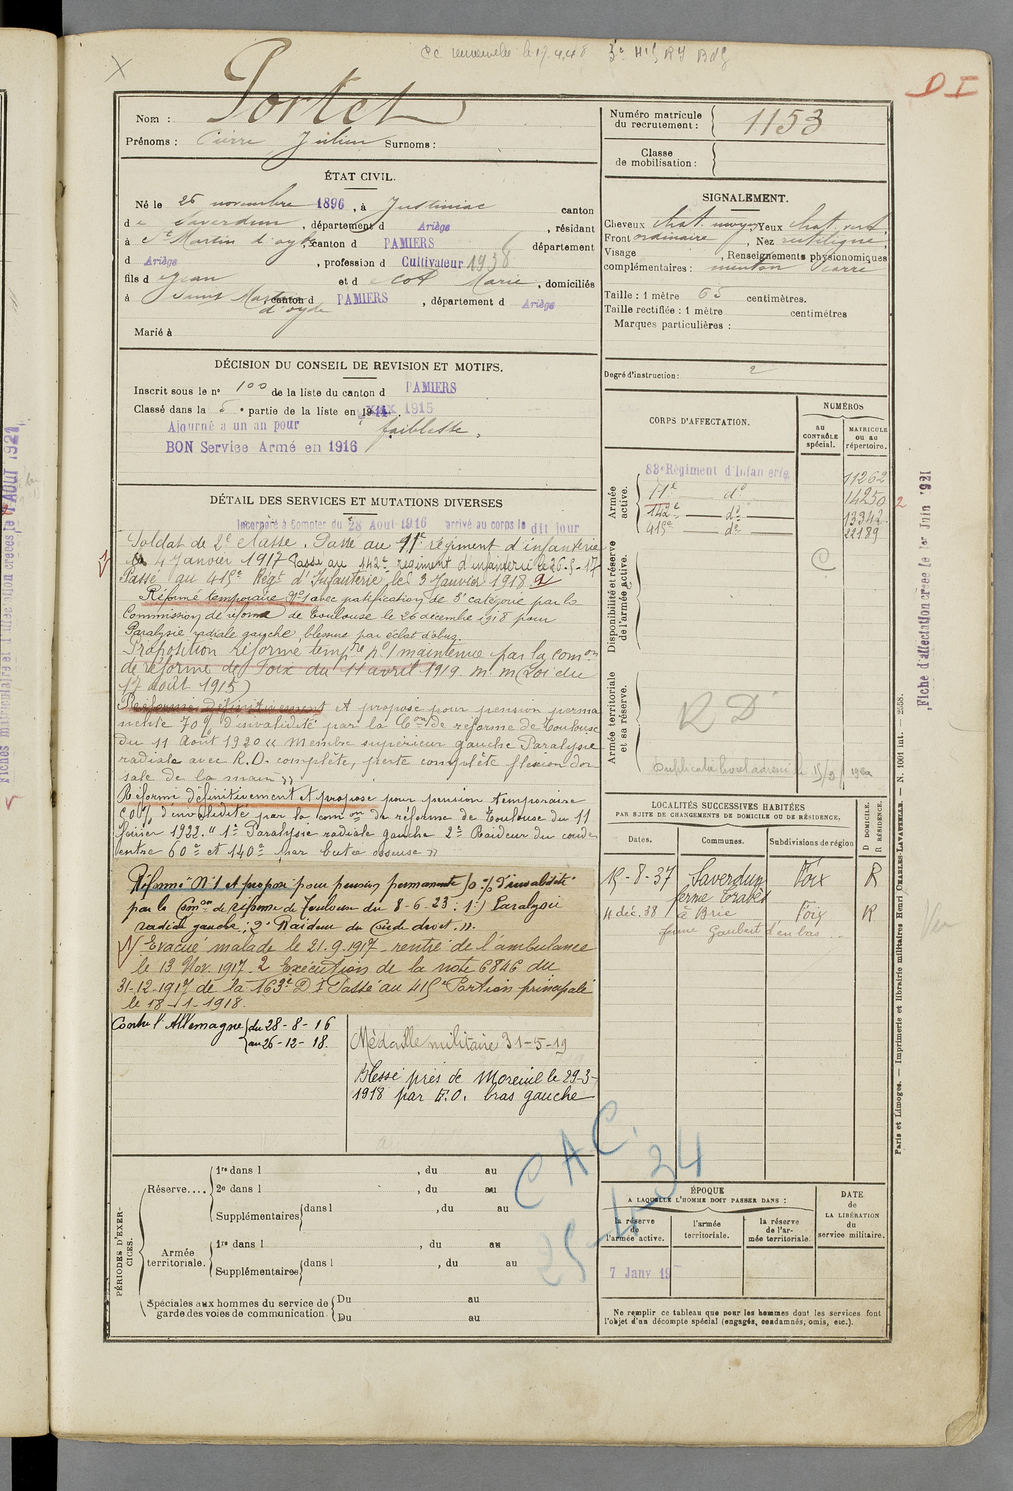 Cc renouvelée le 17.4.48
D I
Nom : Portet
Prénoms : Pierre Julien Surnoms :
Numéro matricule
du recrutement : 1153
Classe
de mobilisation :
ÉTAT CIVIL.
Né le 26 novembre 1896, à Justiniac canton
de Saverdun, département d Ariège, résidant
à St Martin d'oydes canton d PAMIERS département
d Ariège, profession d Cultivateur 1938
fils d Jean et d Marie, domiciliés
à Saint Martin d'oydes canton d PAMIERS, département d Ariège
Marié à
SIGNALEMENT.
Cheveux chat. moyen Yeux chat. vert
Front ordinaire, Nez rectiligne
Visage , Renseignements physionomiques
complémentaires : menton carré
Taille : 1 mètre 65 centimètres.
Taille rectifiée : 1 mètre centimètres
Marques particulières :
Degré d'instruction : 2
DÉCISION DU CONSEIL DE REVISION ET MOTIFS.
Inscrit sous le n° 100 de la liste du canton d PAMIERS
Classé dans la 5e partie de la liste en 1915
Ajourné a un an pour faiblesse.
BON Service Armé en 1916
CORPS D'AFFECTATION.
NUMÉROS
AU CONTRÔLE spécial.
MATRICULE OU AU répertoire.
Armée active.
83e Régiment d'Infanterie 11262
11e d° 14250
142e d° 13342
415e d° 22189
Disponibilité et réserve de l'armée active.
C
Armée territoriale et sa réserve.
R D
DÉTAIL DES SERVICES ET MUTATIONS DIVERSES
Incorporé à Compter du 28 Août 1916 arrivé au corps le dit jour
Soldat de 2e classe. Passé au 11e régiment d'infanterie
le 4 Janvier 1917 Passé au 142e régiment d'infanterie le 26-5-17
Passé au 415e Régt d'Infanterie, le 3 Janvier 1918
Réformé temporaire N°1 avec gratification de 5e catégorie par la
Commission de réforme de Toulouse le 26 décembre 1918 pour
Paralysie radiale gauche, blessure par éclat d'obus.
Proposition Réforme tempre n°1 maintenue par la comon
de réforme de Foix du 11 avril 1919 m.m (Loi du
17 août 1915)
Réformé définitivement et proposé pour pension perma
nente 70% d'invalidité par la Con de réforme de Toulouse
du 11 Août 1920 " membre supérieur gauche Paralysie
radiale avec R.D. complète, perte complète flexion dor
sale de la main "
Réformé définitivement et proposé pour pension temporaire
60% d'invalidité par la comon de réforme de Toulouse du 11
février 1922. " 1° Paralysie radiale gauche 2° Raideur du coude
entre 60° et 140° par butée osseuse "
Réformé N°1 et proposé pour pension permanente d'invalidité
par la Comon de réforme de Toulouse du 8-6-23 : 1°) Paralysie
radiale gauche ; 2° Raideur du coude droit. "
Evacué malade le 21.9.1917 - rentré de l'ambulance
le 13 Nov. 1917. 2 Exécution de la note 6846 du
31-12-1917 de la 163e D.I Passé au 415e Portion principale
le 18-1-1918.
Contre l'Allemagne du 28-8-16
au 26-12-18.
Médaille militaire 31-5-19
Blessé près de Moreuil le 29-3-
1918 par E.O. bras gauche
LOCALITÉS SUCCESSIVES HABITÉES
PAR SUITE DE CHANGEMENTS DE DOMICILE OU DE RÉSIDENCE.
Dates. Communes. Subdivisions de région D DOMICILE. R RÉSIDENCE.
15-8-37 Saverdun Foix R
ferme
4 déc. 38 à Brie Foix R
ferme Gaubert d'en bas
CAC.
25-4-34
PÉRIODES D'EXERCICES.
Réserve....
1re dans l , du au
2e dans l , du au
Supplémentaires dans l , du au
Armée territoriale.
1re dans l , du au
Supplémentaires dans l , du au
Spéciales aux hommes du service de
garde des voies de communication
Du au
Du au
ÉPOQUE
A LAQUELLE L'HOMME DOIT PASSER DANS :
la réserve de l'armée active.
l'armée territoriale.
la réserve de l'armée territoriale.
DATE DE LA LIBÉRATION du service militaire.
7 Janv 19
Ne remplir ce tableau que pour les hommes dont les services font
l'objet d'un décompte spécial (engagés, condamnés, omis, etc.).
Fiche d'affectation créée le 1er Juin 1921
Paris et Limoges. — Imprimerie et librairie militaires Henri CHARLES-LAVAUZELLE. — N. 1001 int. — 2558.